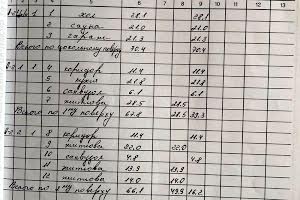 1 2 3 4 5 6 7 8 9 10 11 12 13
1 хол 28.1 28.1
2 сауна 21.0 21.0
3 гараж 21.3 21.3
Всього по цокольному поверху 70.4 70.4
2 1 4 коридор 11.4 11.4
5 кухня 21.8 21.8
6 санвузол 6.1 6.1
7 житлова 28.5 28.5
Всього по 1му поверху 67.8 28.5 39.3
2 1 8 коридор 11.4 11.4
9 житлова 22.0 22.0
10 санвузол 4.8 4.8
11 житлова 13.9 13.9
12 житлова 14.0 14.0
Всього по 2му поверху 66.1 49.9 16.2